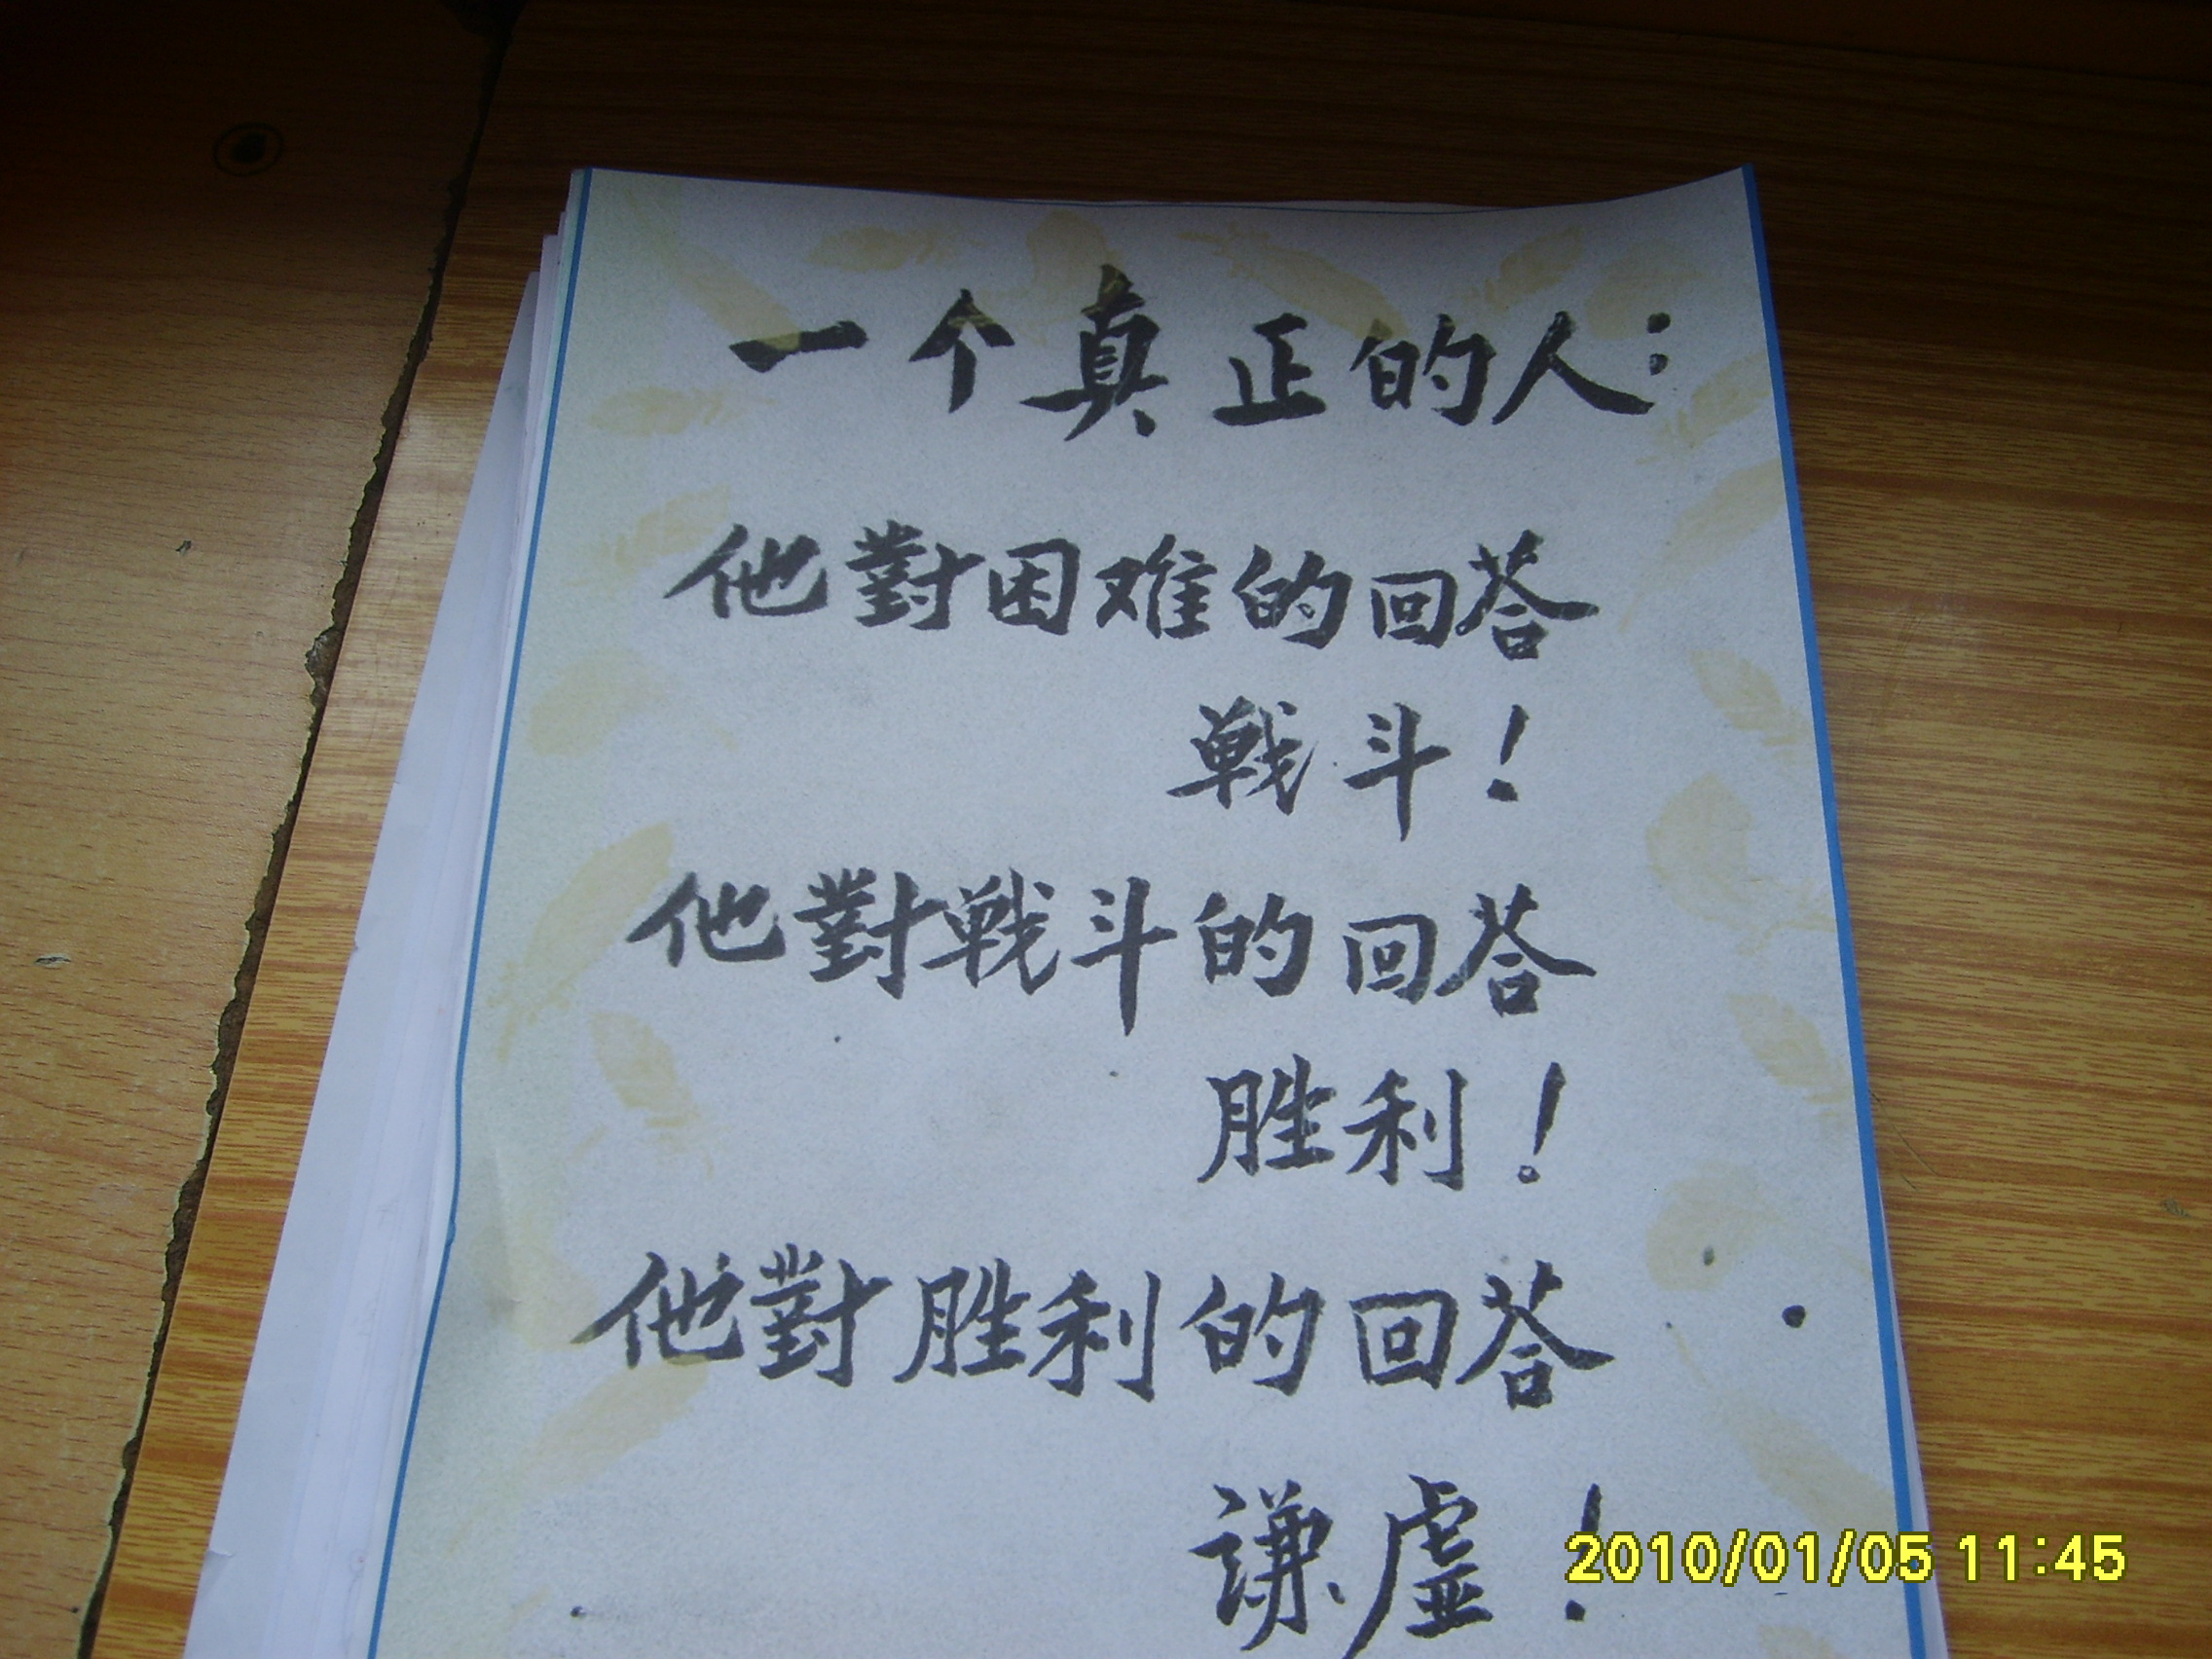 一个真正的人：
他對困难的回答
戦斗！
他對戦斗的回答
胜利！
他對胜利的回答
謙虚！
2010/01/05 11:45